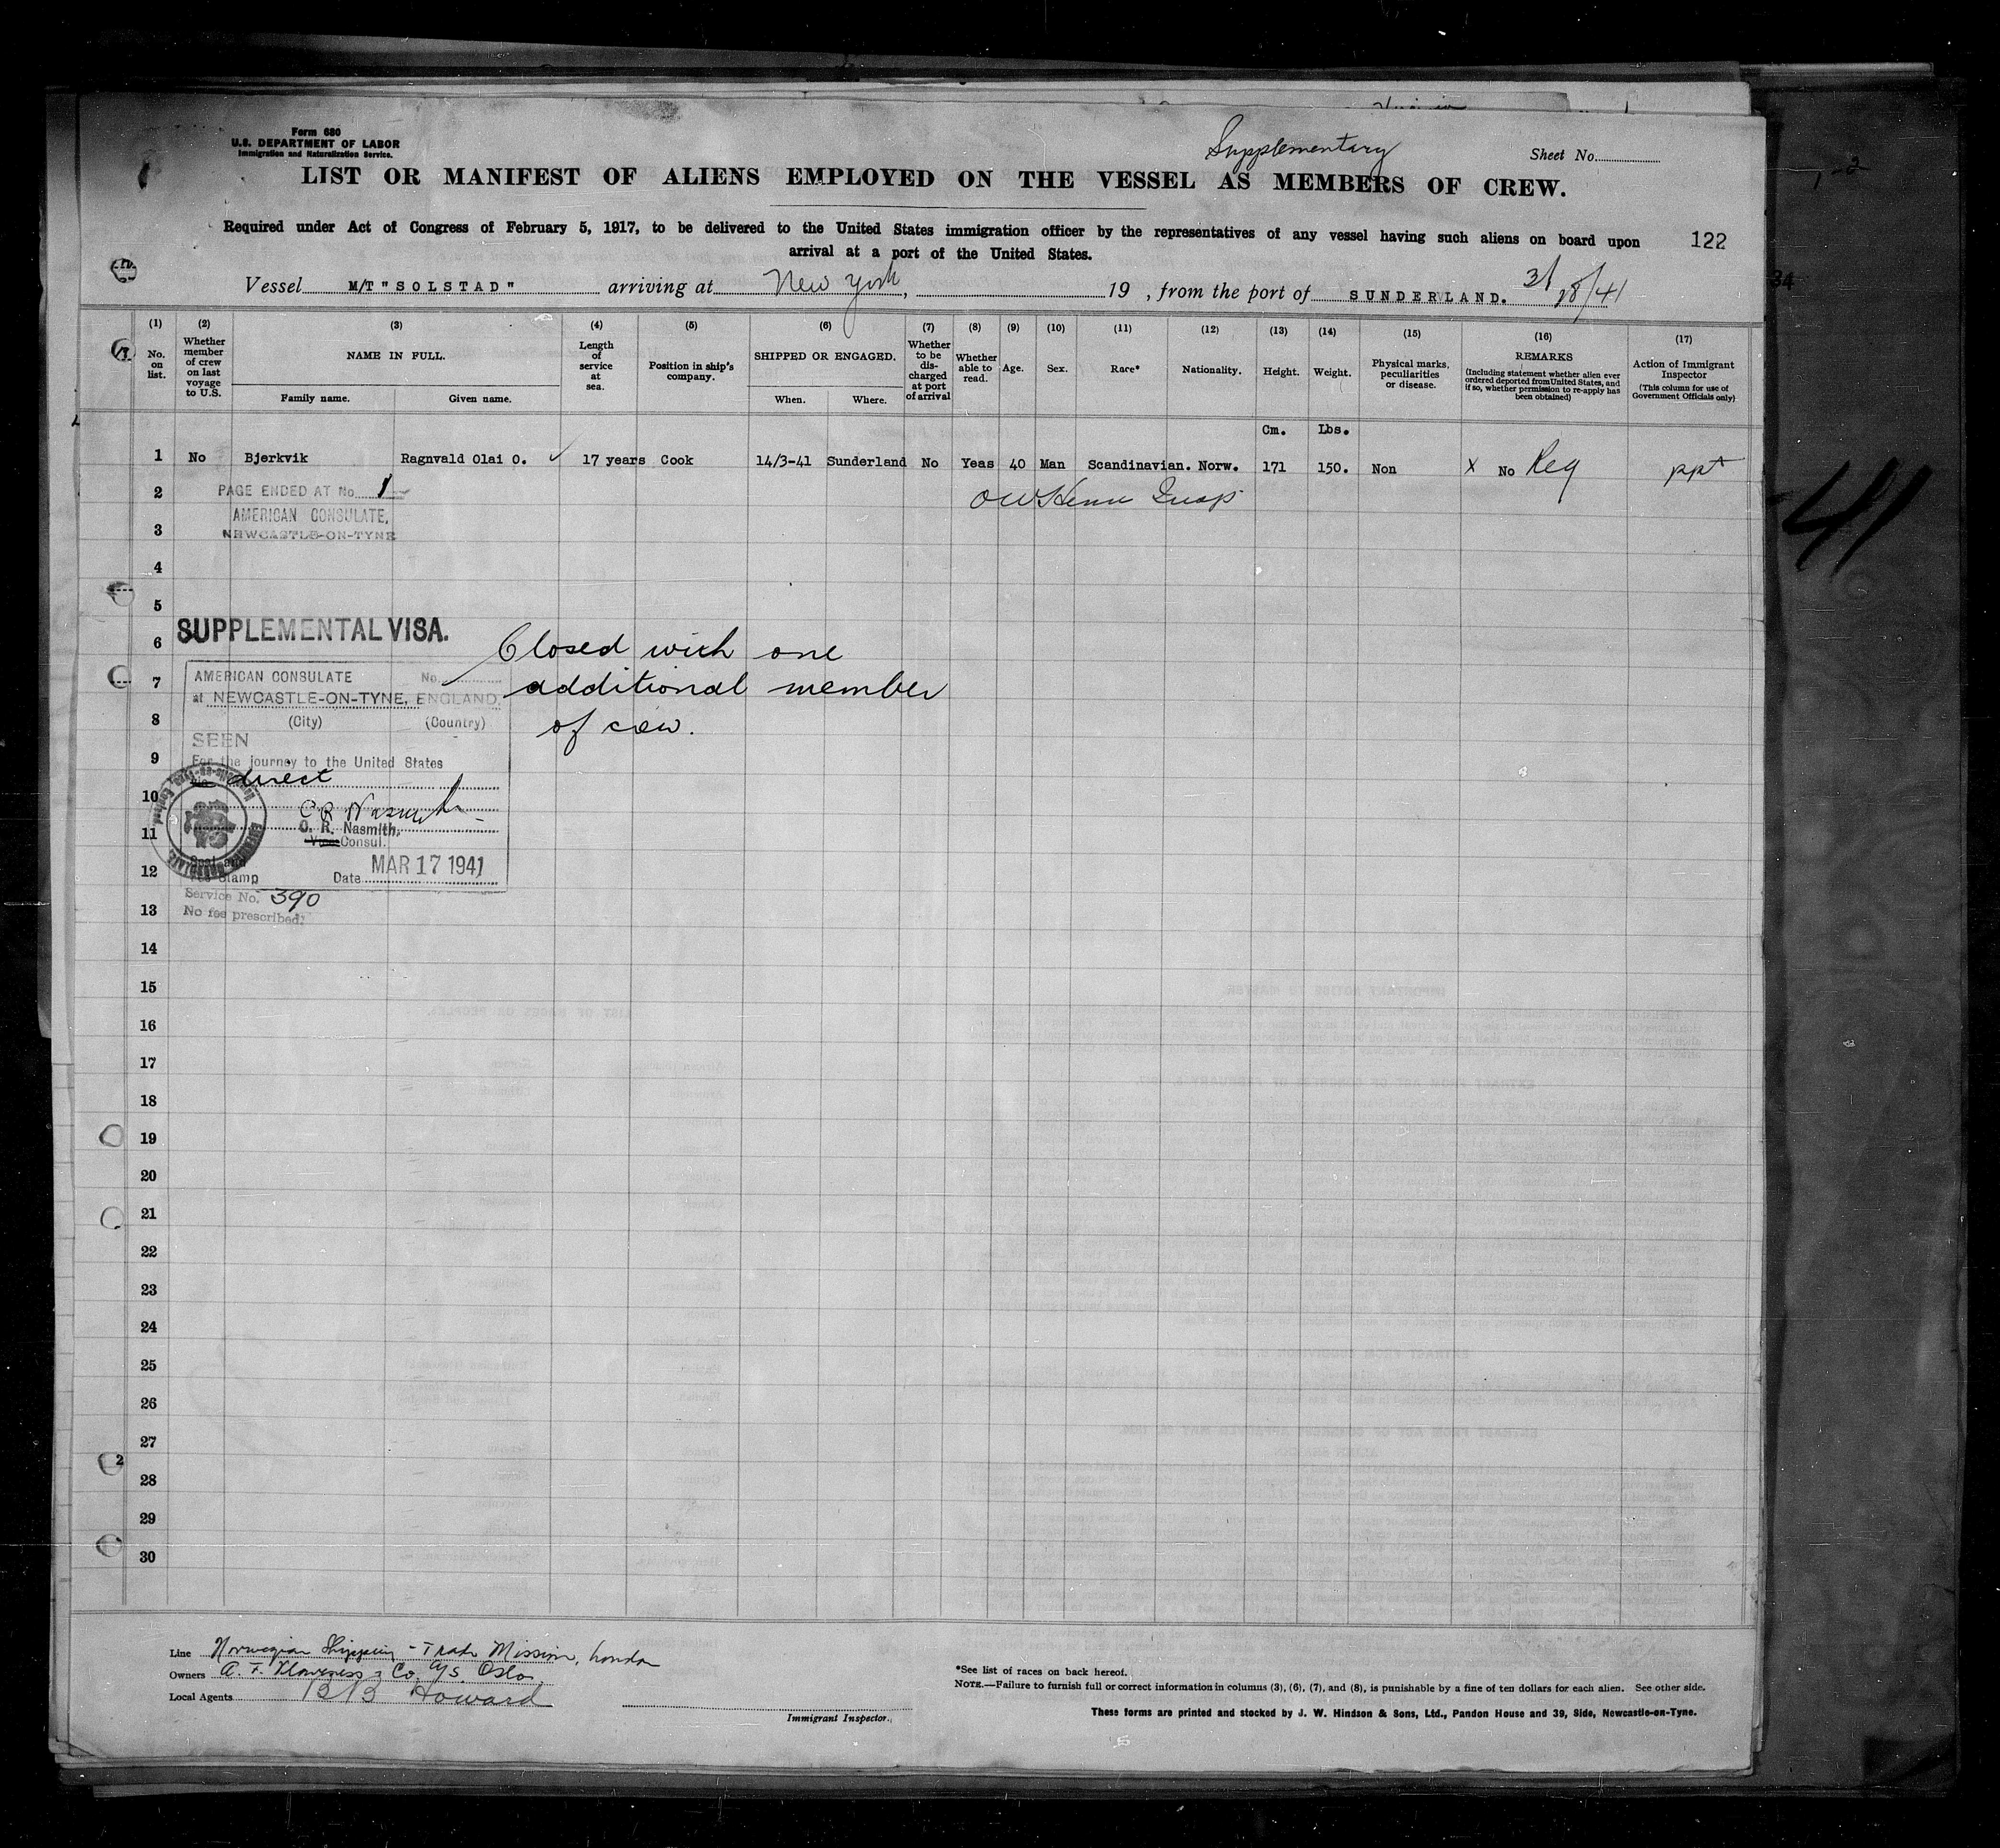 Form 680
U.S. DEPARTMENT OF LABOR
Immigration and Naturalization Service.
Supplementary
Sheet No.
LIST OR MANIFEST OF ALIENS EMPLOYED ON THE VESSEL AS MEMBERS OF CREW.
Required under Act of Congress of February 5, 1917, to be delivered to the United States immigration officer by the representatives of any vessel having such aliens on board upon
arrival at a port of the United States.
122
Vessel M/T "SOLSTAD" arriving at New York, 19 , from the port of SUNDERLAND. 3/18/41
(1) (2) (3) (4) (5) (6) (7) (8) (9) (10) (11) (12) (13) (14) (15) (16) (17)
No. on list.
Whether member of crew on last voyage to U.S.
NAME IN FULL.
Family name. Given name.
Length of service at sea.
Position in ship's company.
SHIPPED OR ENGAGED.
When. Where.
Whether to be dis-charged at port of arrival
Whether able to read.
Age.
Sex.
Race*
Nationality.
Height.
Weight.
Physical marks, peculiarities or disease.
REMARKS
(Including statement whether alien ever ordered deported from United States, and if so, whether permission to re-apply has been obtained)
Action of Immigrant Inspector
(This column for use of Government Officials only)
Cm. Lbs.
1 No Bjerkvik Ragnvald Olai O. ✓ 17 years Cook 14/3-41 Sunderland No Yeas 40 Man Scandinavian. Norw. 171 150. Non X No Reg ppt
2 PAGE ENDED AT No. 1
AMERICAN CONSULATE,
3 NEWCASTLE-ON-TYNE
4
5
6 SUPPLEMENTAL VISA.
Closed with one
additional member
of crew.
7 AMERICAN CONSULATE No.
at NEWCASTLE-ON-TYNE, ENGLAND.
8 (City) (Country)
SEEN
9 For the journey to the United States
direct
10
11 C. R. Nasmith,
Vice Consul.
12 Seal and
Fee Stamp Date MAR 17 1941
Service No. 390
13 No fee prescribed.
14
15
16
17
18
19
20
21
22
23
24
25
26
27
28
29
30
Line Norwegian Shipping - Trade Mission, London
Owners A. F. Klaveness & Co. A/S. Oslo
Local Agents Howard
Immigrant Inspector.
*See list of races on back hereof.
NOTE.—Failure to furnish full or correct information in columns (3), (6), (7), and (8), is punishable by a fine of ten dollars for each alien. See other side.
These forms are printed and stocked by J. W. Hindson & Sons, Ltd., Pandon House and 39, Side, Newcastle-on-Tyne.
41